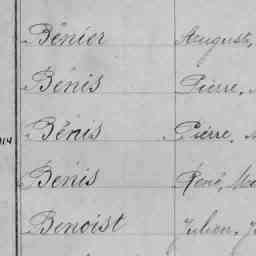 Bénier Auguste,
Bénis Pierre,
914 Bénis Pierre,
Bénis René,
Benoist Julien,